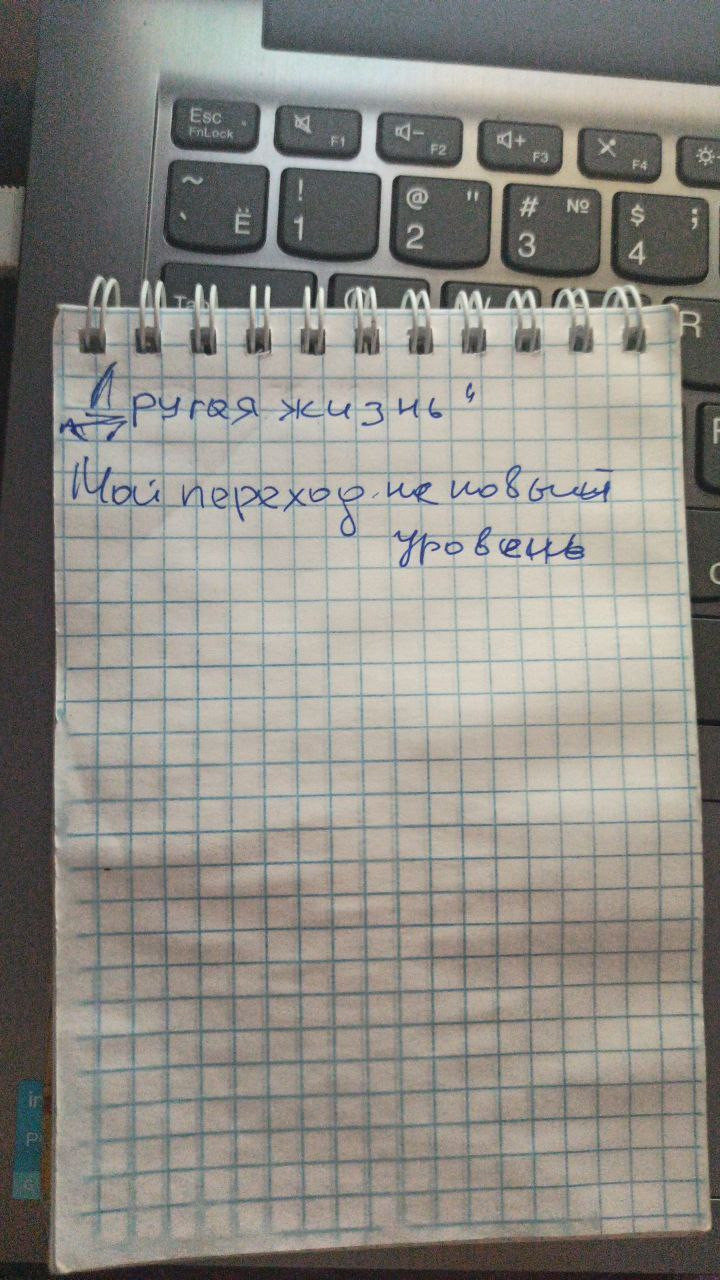 Esc
FnLock
F1
F2
F3
F4
~
` Ё
!
1
@ "
2
# №
3
$ ;
4
Tab
R
Другая жизнь"
Мой переход на новый
уровень